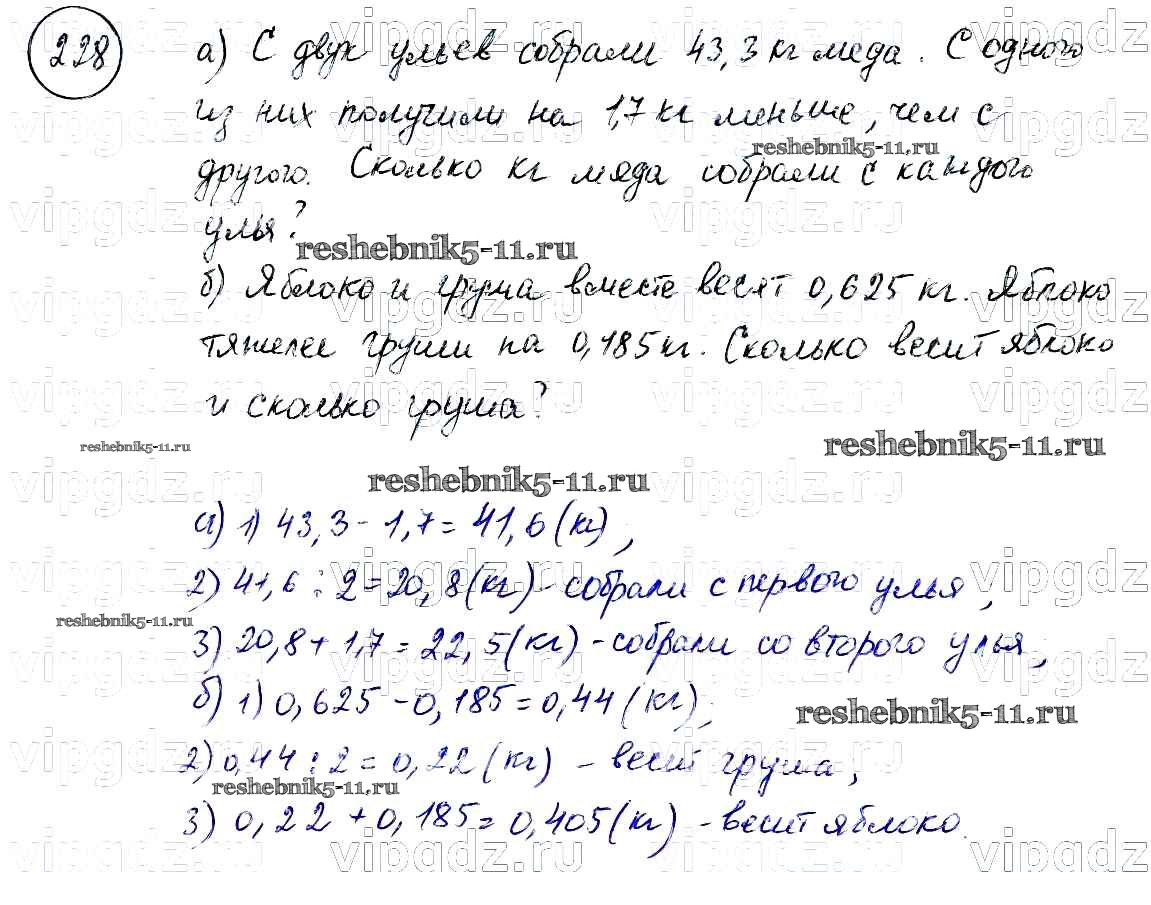 228
а) С двух ульев собрали 43,3 кг меда. С одного
из них получили на 1,7 кг меньше, чем с
reshebnik5-11.ru
другого. Сколько кг меда собрали с каждого
улья?
reshebnik5-11.ru
б) Яблоко и груша вместе весят 0,625 кг. Яблоко
тяжелее груши на 0,185 кг. Сколько весит яблоко
и сколько груша?
reshebnik5-11.ru
reshebnik5-11.ru
reshebnik5-11.ru
а) 1) 43,3 - 1,7 = 41,6 (кг),
2) 41,6 : 2 = 20,8 (кг) - собрали с первого улья,
reshebnik5-11.ru
3) 20,8 + 1,7 = 22,5 (кг) - собрали со второго улья,
б) 1) 0,625 - 0,185 = 0,44 (кг),
reshebnik5-11.ru
2) 0,44 : 2 = 0,22 (кг) - весит груша,
reshebnik5-11.ru
3) 0,22 + 0,185 = 0,405 (кг) - весит яблоко.
vipgdz.ru vipgdz.ru vipgdz.ru vipgdz